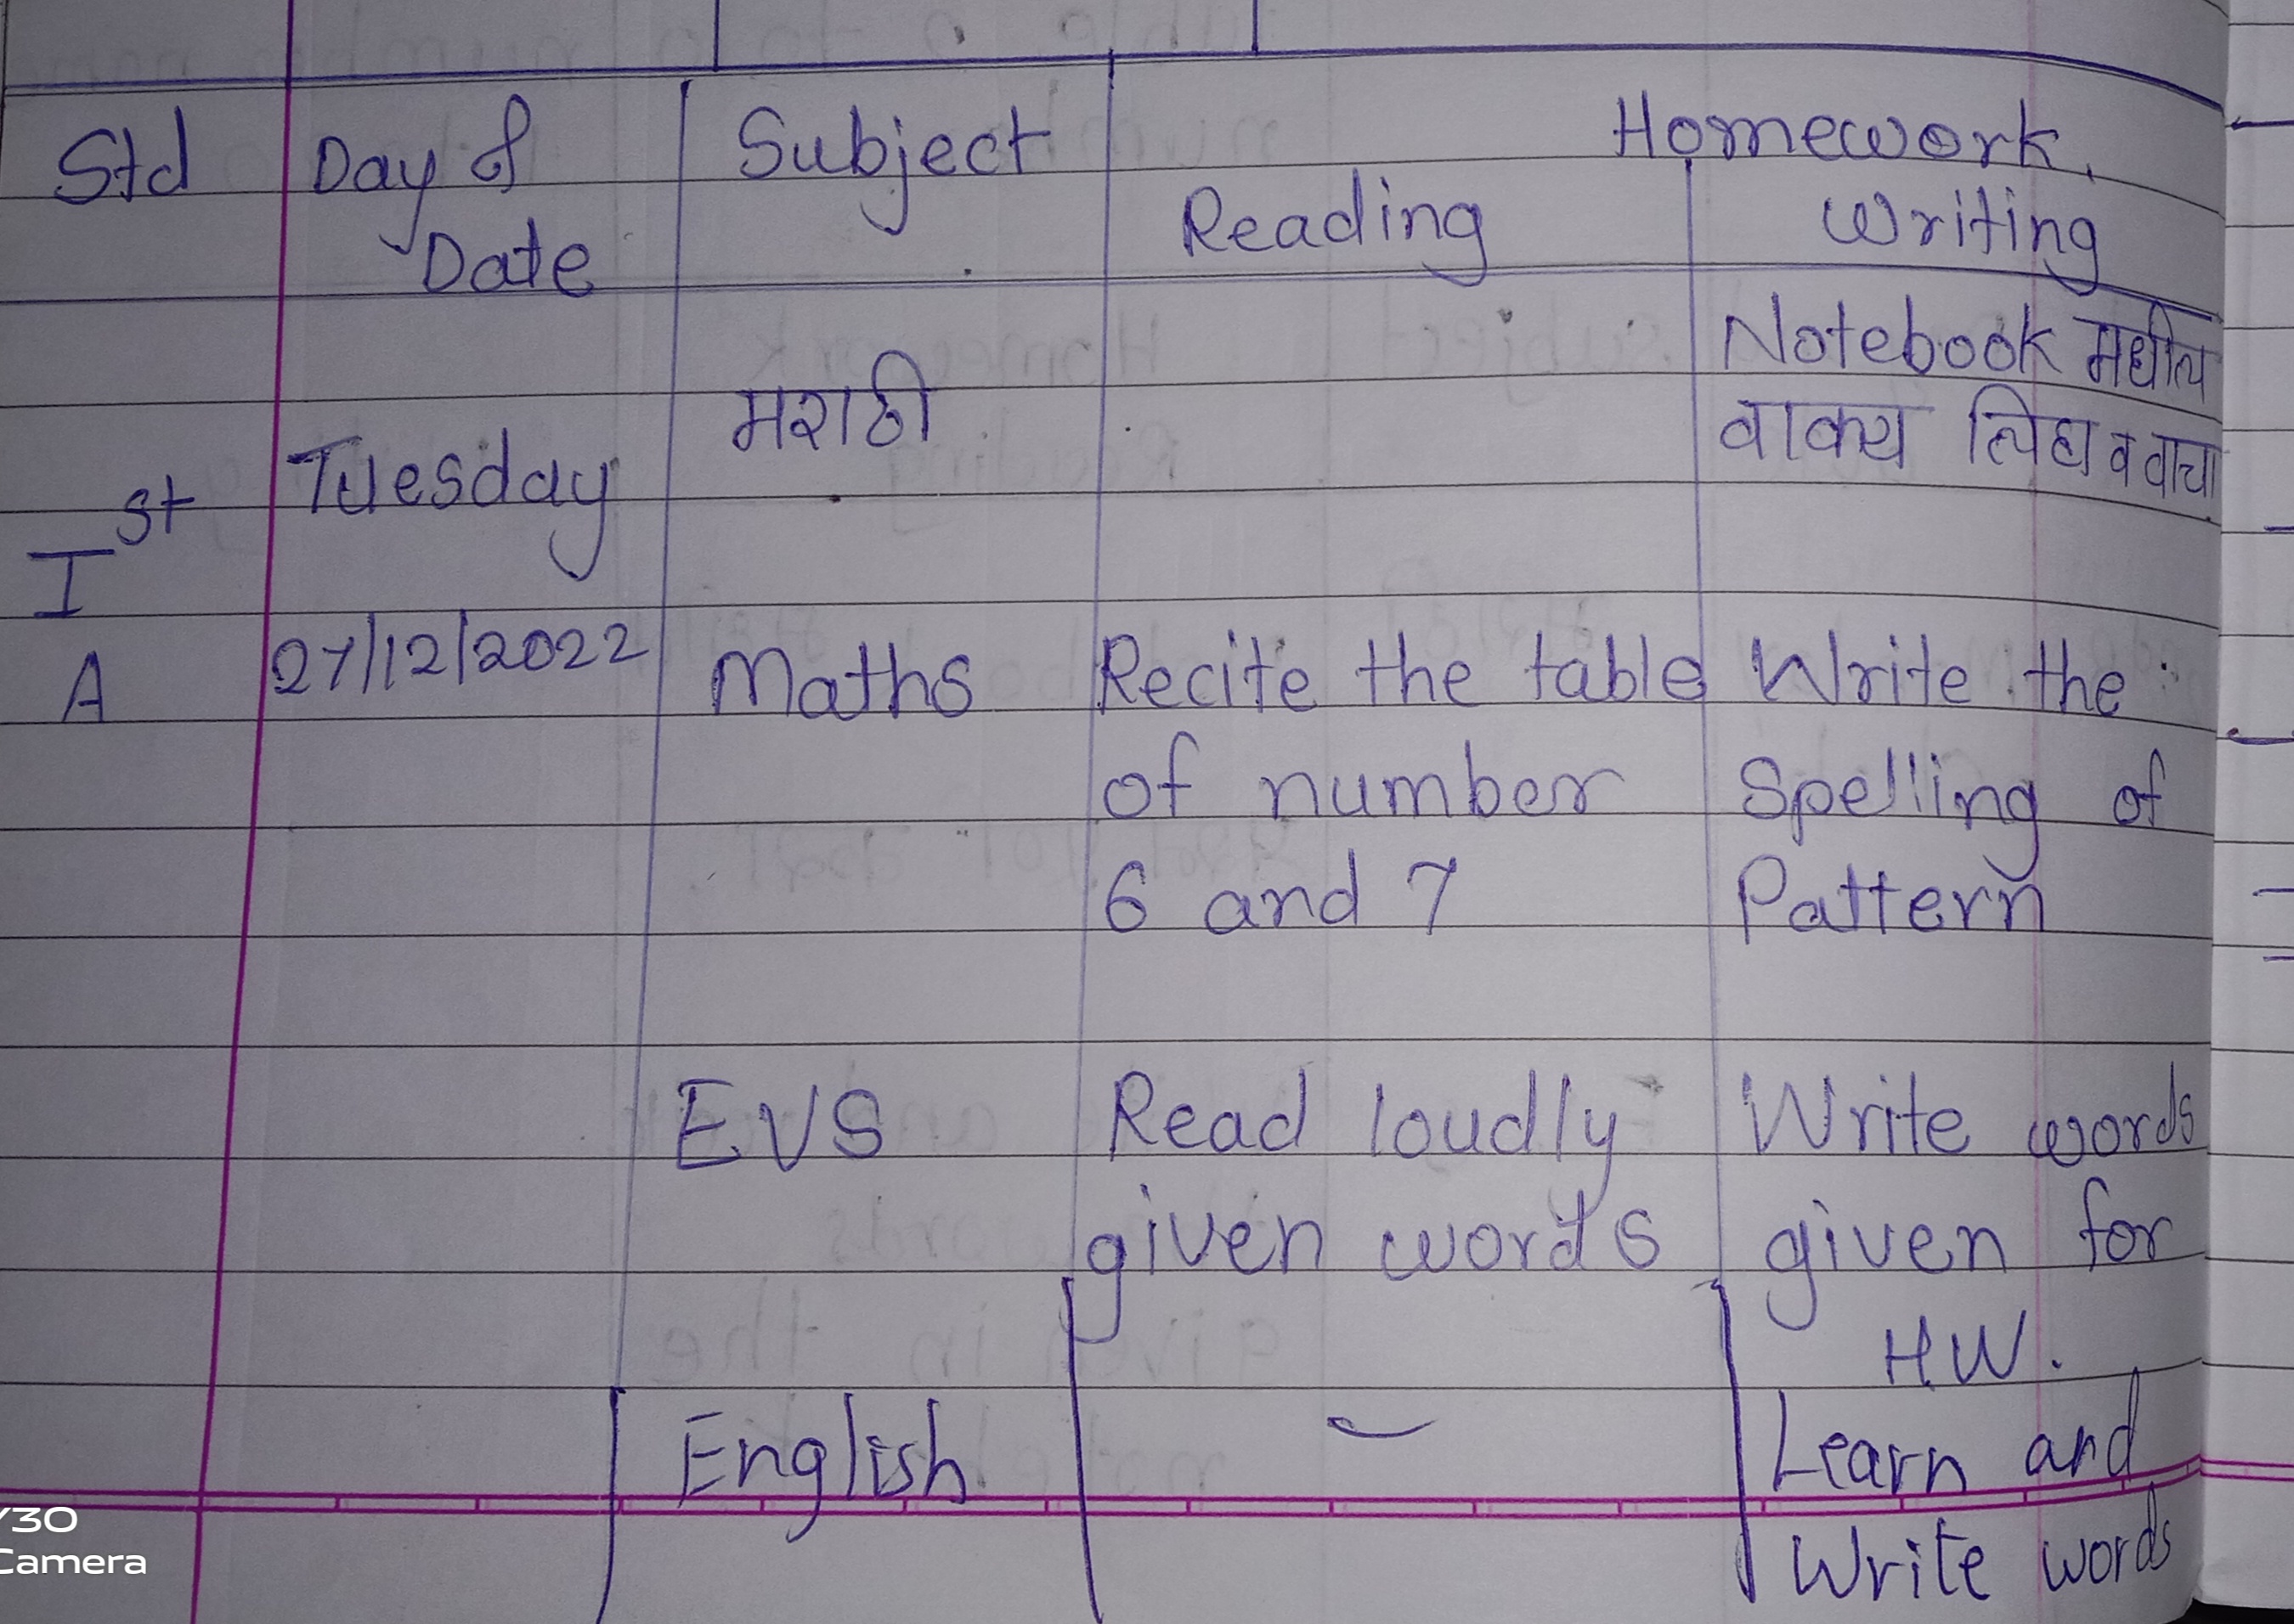 Std Day & Subject Homework.
Date Reading Writing
Notebook मधील
मराठी वाक्य लिहा व वाचा
Ist Tuesday
A 27/12/2022 Maths Recite the table Write the
of number Spelling of
6 and 7 Pattern
EVS Read loudly Write words
given words given for
HW.
English - Learn and
Write words
/30
Camera